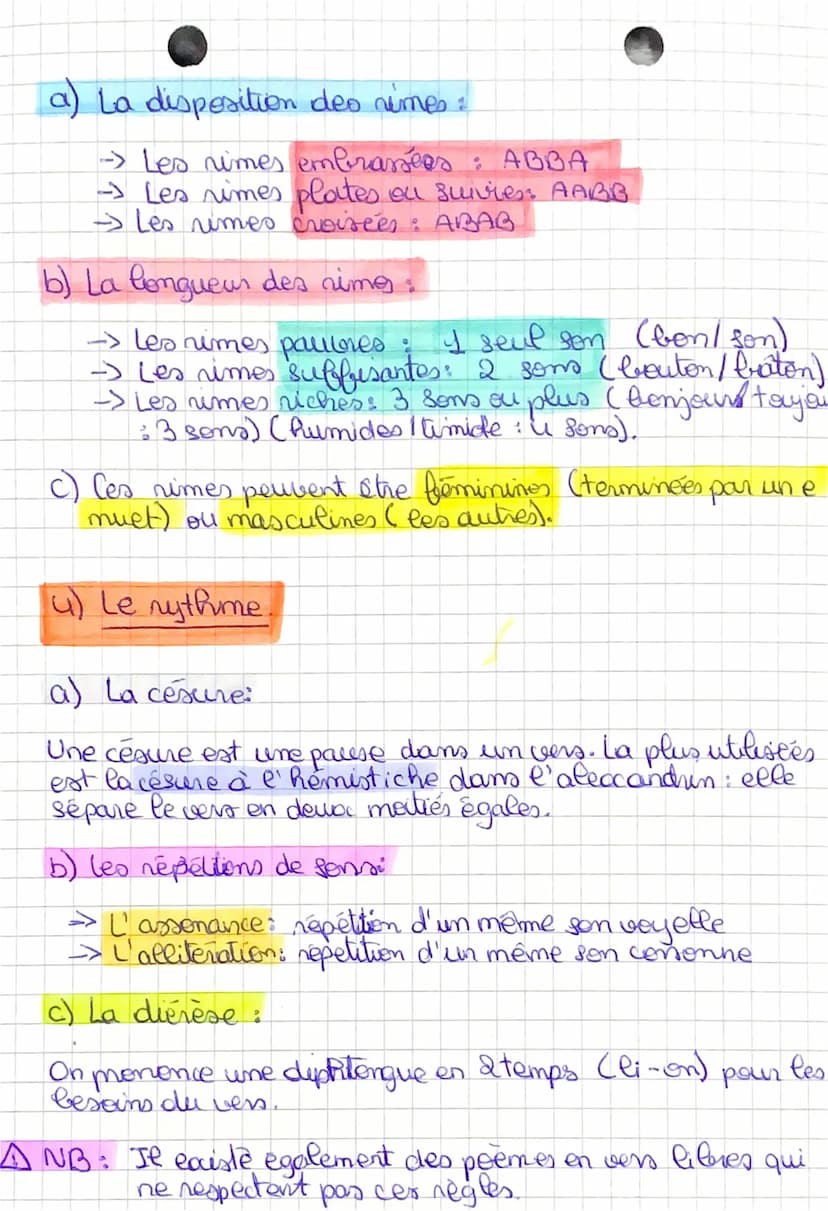 a) La disposition des rimes :
-> Les rimes embrassées : ABBA
-> Les rimes plates ou suivies : AABB
-> Les rimes croisées : ABAB
b) La longueur des rimes :
-> Les rimes pauvres : 1 seul son (bon/son)
-> Les rimes suffisantes : 2 sons (bouton/bâton)
-> Les rimes riches : 3 sons ou plus (bonjour/toujou
: 3 sons) (humides/timide : 4 sons).
c) Ces rimes peuvent être féminines (terminées par un e
muet) ou masculines (les autres).
4) Le rythme
a) La césure :
Une césure est une pause dans un vers. La plus utilisées
est la césure à l'hémistiche dans l'alexandrin : elle
sépare le vers en deux moitiés égales.
b) Les répétions de sons :
-> L'assonance : répétition d'un même son voyelle
-> L'allitération : répetition d'un même son consonne
c) La diérèse :
On prononce une diphtongue en 2 temps (li-on) pour les
besoins du vers.
⚠ NB : Il existe egalement des poèmes en vers libres qui
ne respectent pas ces règles.